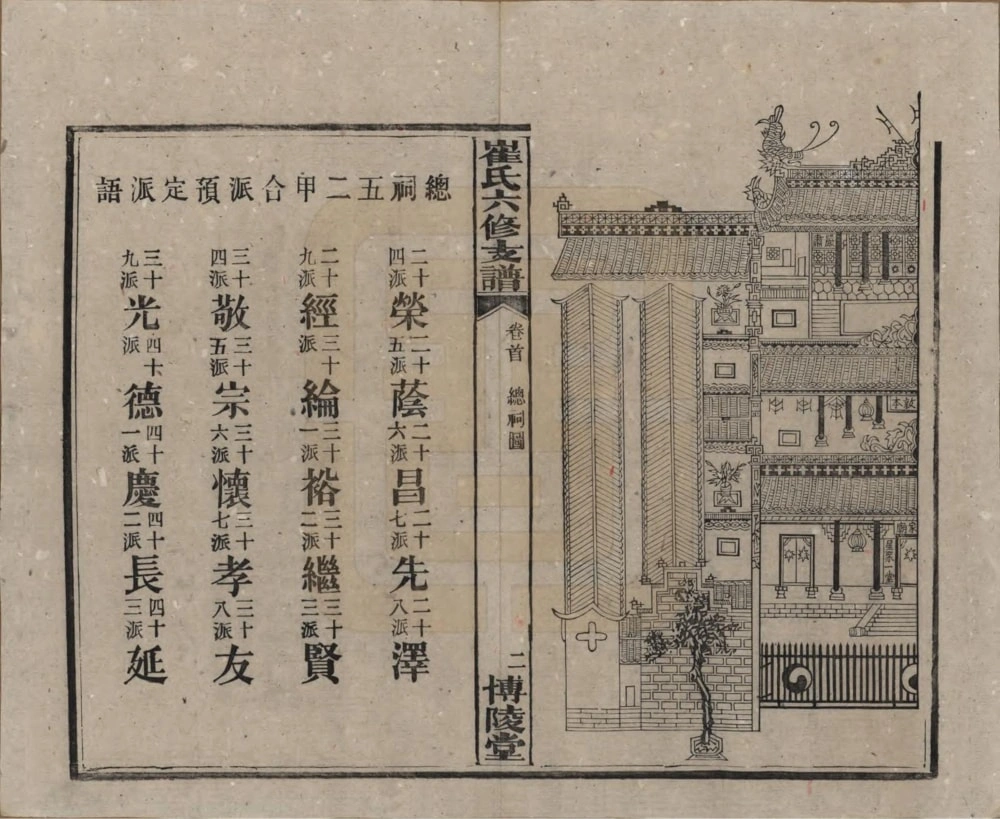 敦本
家廟
星聚一堂
崔氏六修支譜
卷首
總祠圖
二
博陵堂
總祠五二甲合派預定派語
二十四派 榮 二十五派 蔭 二十六派 昌 二十七派 先 二十八派 澤
二十九派 經 三十派 綸 三十一派 裕 三十二派 繼 三十三派 賢
三十四派 敬 三十五派 宗 三十六派 懷 三十七派 孝 三十八派 友
三十九派 光 四十派 德 四十一派 慶 四十二派 長 四十三派 延